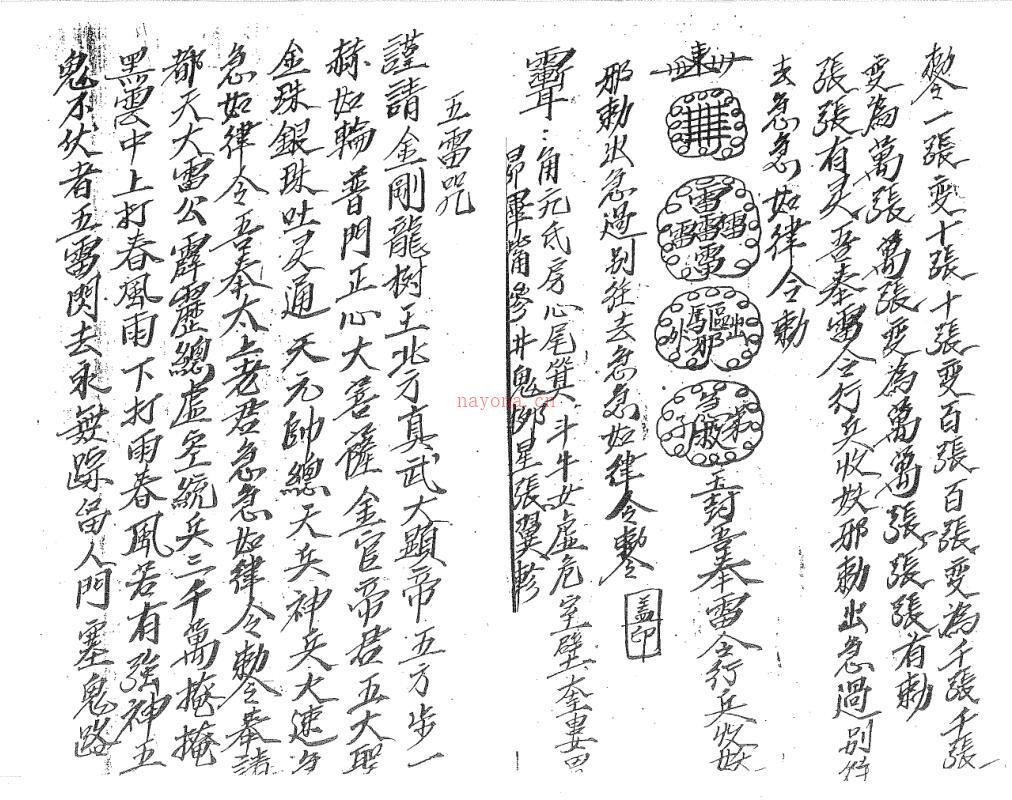 敕令一張变十張十張变百張百張变為千張千張
变為萬張萬張变為萬萬張張張有勅
張張有灵吾奉雷令行兵收妖邪勅出急過别
去急急如律令勅
東
雷雷雷雷雷
玉封吾奉雷令行兵收妖
邪勅出急過别往去急急如律令敕令
蓋印
角亢氐房心尾箕斗牛女虚危室壁奎婁
昴畢觜參井鬼柳星張翼軫
五雷咒
謹請金剛龍樹王北方真武大顕帝五方步一
赫如輪普門正心大菩薩金官帝君五大聖
金珠銀珠吐灵通天元帥總天兵神兵火速
急如律令吾奉太上老君急急如律令敕令奉諸
都天大雷公霹靂總虚空統兵三千萬掩掩
黑雲中上打春風雨下打雨春風若有强神五
鬼不伏者五雷閃去永無踪留人門塞鬼路
nayona.cn